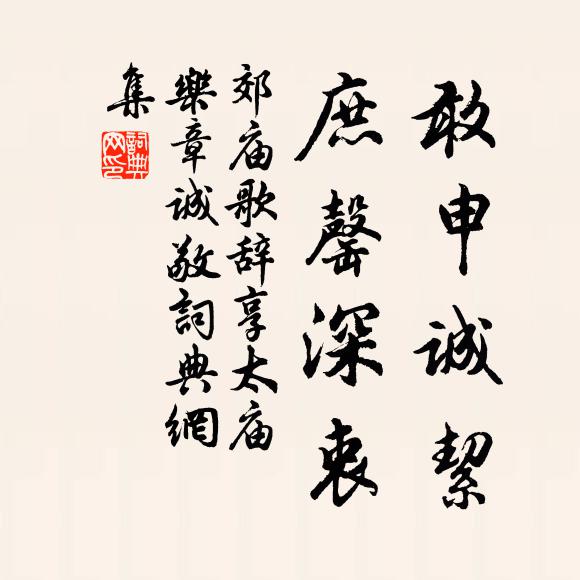 敢申诚絜
庶罄深衷
郊庙歌辞享太庙
樂章诚敬詞典網
集
詞典
网印